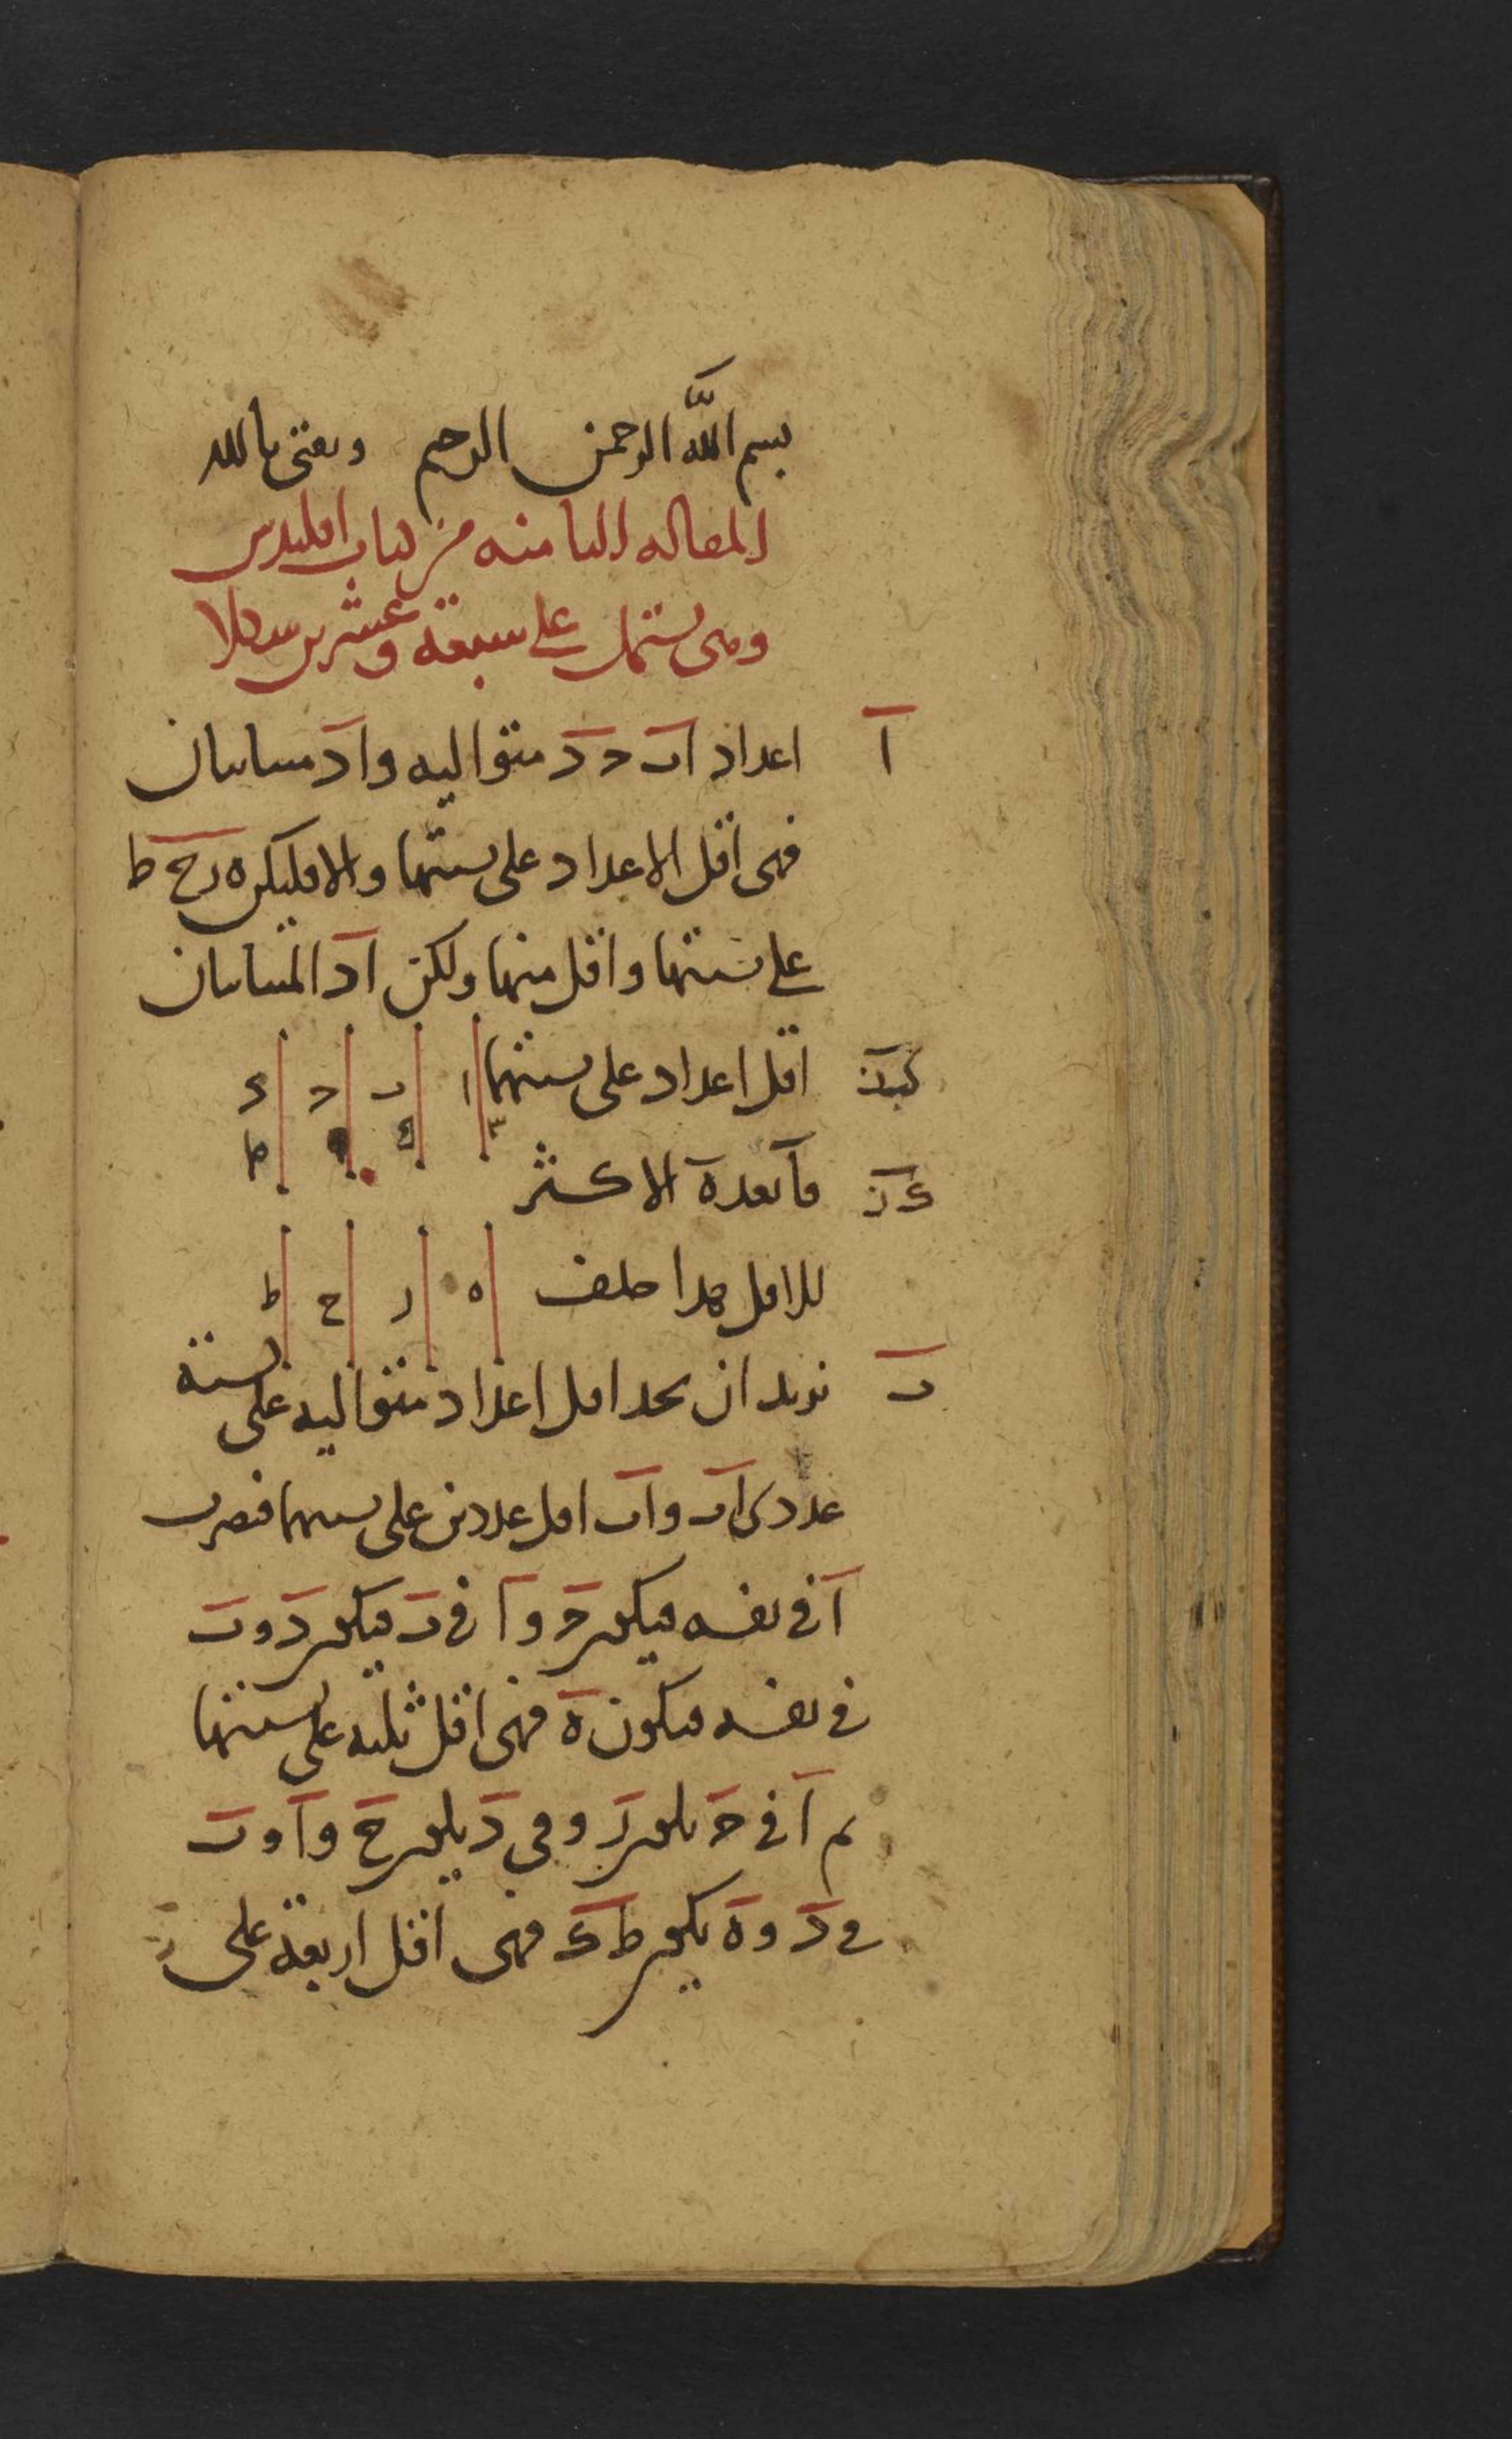 بسم الله الرحمن الرحيم وثقتي بالله
المقاله الثامنه من كتاب اقليدس
وهى تشتمل على سبعة وعشرين شكلا
ا اعداد اب ح د متواليه وا د متباينان
فهى اقل الاعداد على نسبتها والا فليكن ه ر ح ط
على نسبتها واقل منها ولكن ا د المتباينان
اقل اعداد على نسبتهما ا ب ح د
فا يعد ه الاكثر
للاقل هذا خلف ه ر ح ط
ب نريد ان نجد اقل اعداد متواليه على نسبة
عددى اب واب اقل عددين على نسبتهما فنضرب
ا فى نفسه فيكون ح وا فى ب فيكون د وب
فى نفسه فيكون ه فهى اقل ثلثه على نسبتها
ثم ا فى ح يكون ر وفى د يكون ح وا وب
فى د وه يكون ط ك فهى اقل اربعة على